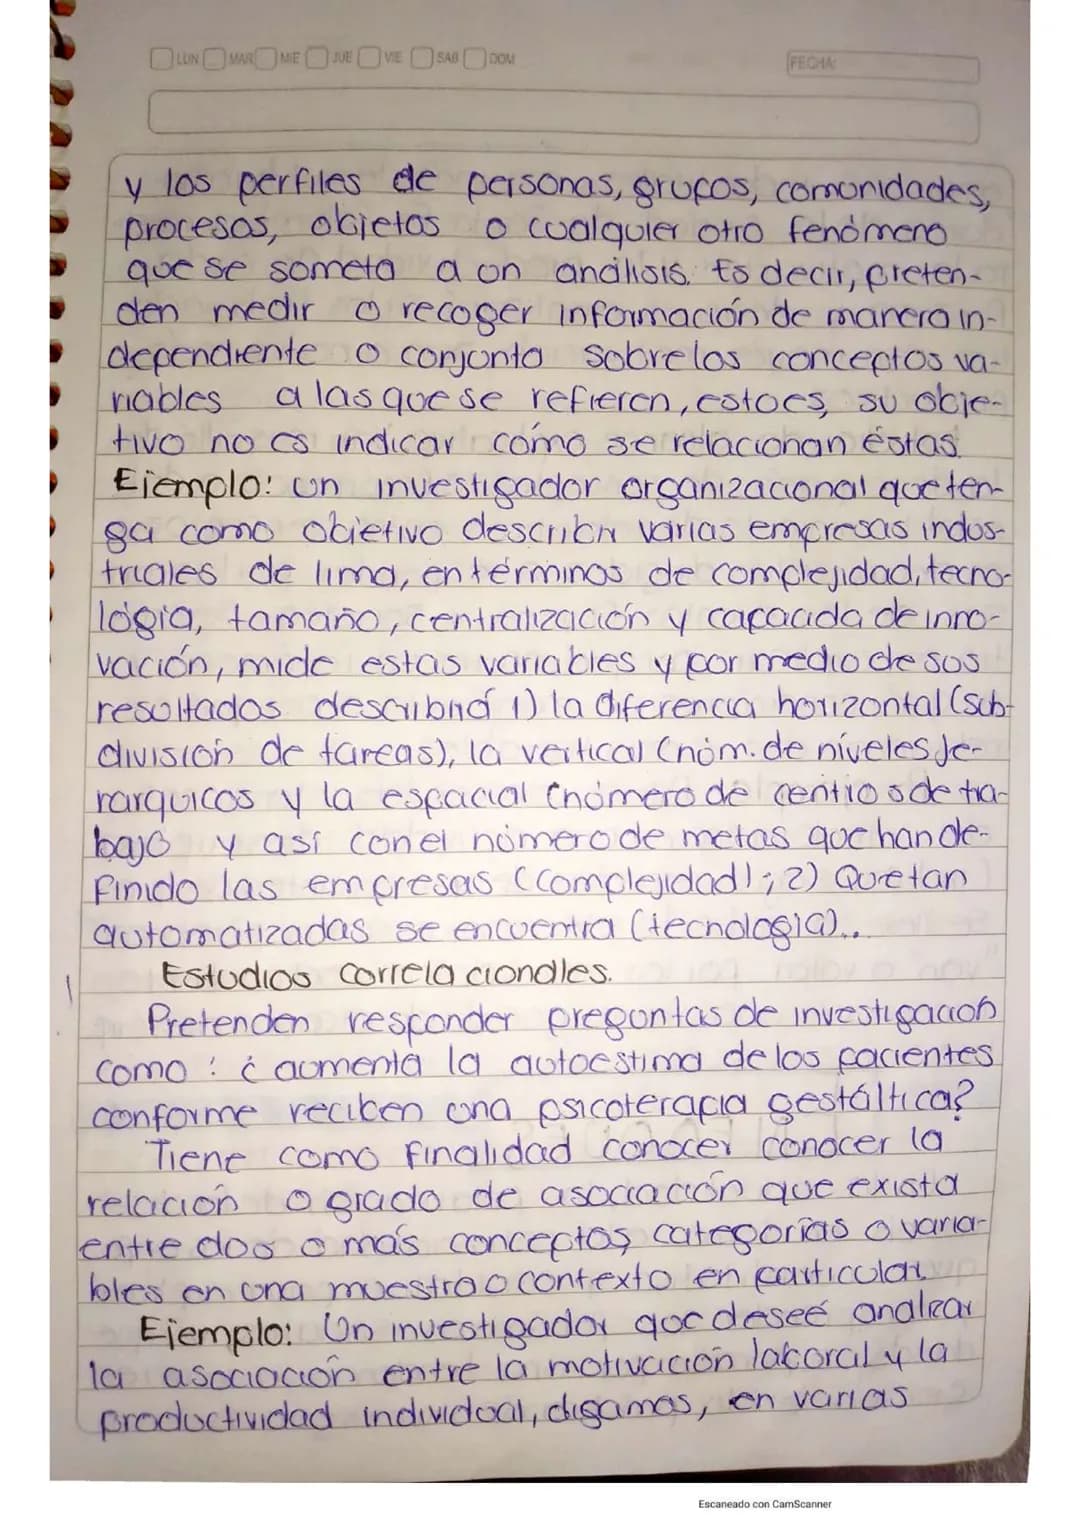 LUN MAR MIE JUE VIE SAB DOM FECHA:
y los perfiles de personas, grupos, comunidades,
procesos, objetos o cualquier otro fenómeno
que se someta a un análisis. Es decir, preten-
den medir o recoger información de manera in-
dependiente o conjunta sobre los conceptos va-
riables a las que se refieren, esto es, su obje-
tivo no es indicar cómo se relacionan éstas.
Ejemplo: un investigador organizacional que ten-
ga como objetivo describir varias empresas indus-
triales de lima, en términos de complejidad, tecno-
lógia, tamaño, centralización y capacida de inno-
vación, mide estas variables y por medio de sus
resultados describirá 1) la diferencia horizontal (sub-
división de tareas), la vertical (núm. de níveles Je-
rarquicos y la espacial (número de centros de tra-
bajo y así con el número de metas que han de-
finido las empresas (complejidad); 2) Que tan
automatizadas se encuentra (tecnologia)...
Estudios correlacionales.
Pretenden responder preguntas de investigación
como: ¿aumenta la autoestima de los pacientes
conforme reciben una psicoterapia gestáltica?
Tiene como finalidad conocer conocer la
relación o grado de asociación que exista
entre dos o más conceptos categorías o varia-
bles en una muestra o contexto en particular.
Ejemplo: Un investigador que deseé analizar
la asociación entre la motivación laboral y la
productividad individual, digamos, en varias
Escaneado con CamScanner